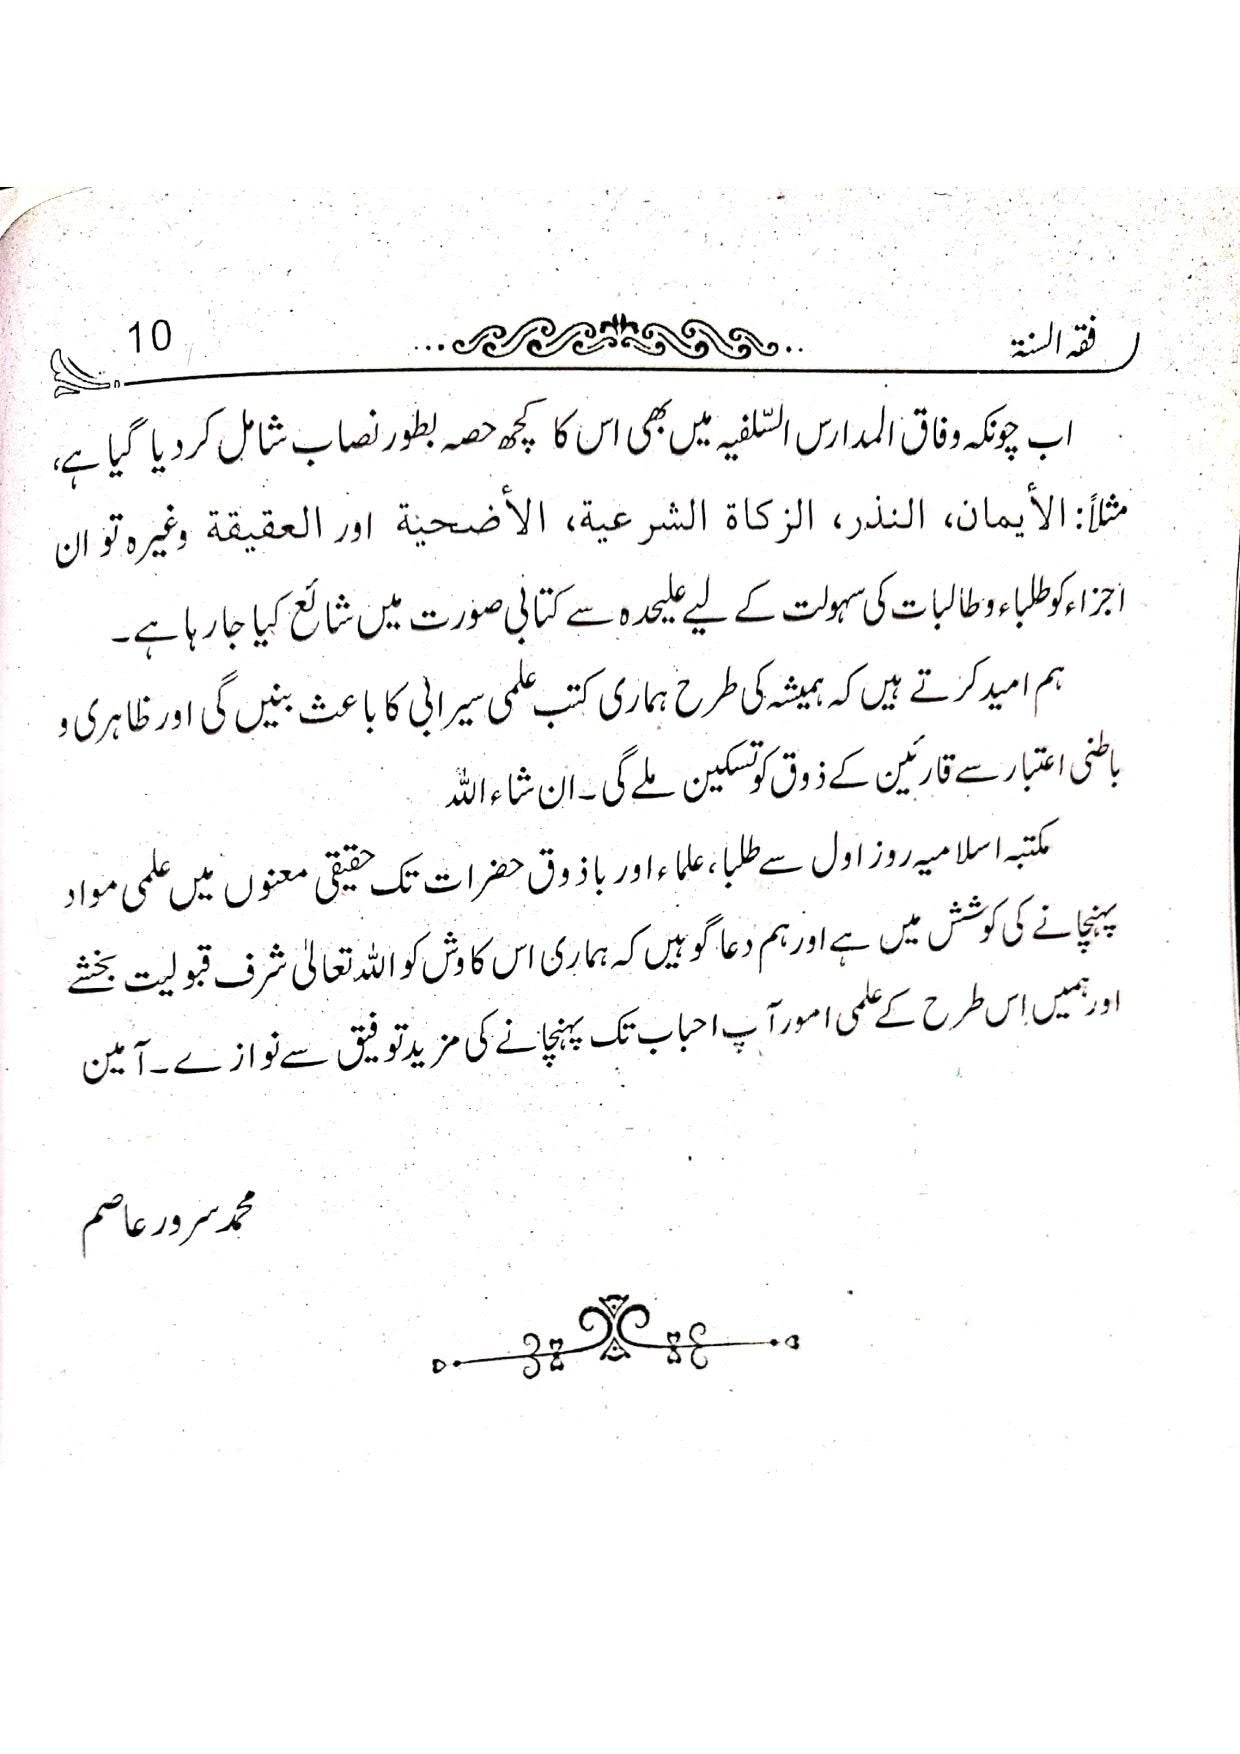 فقہ السنۃ 10
اب چونکہ وفاق المدارس السّلفیہ میں بھی اس کا کچھ حصہ بطور نصاب شامل کر دیا گیا ہے،
مثلاً: الأیمان، النذر، الزکاۃ الشرعیۃ، الأضحیۃ اور العقیقۃ وغیرہ تو ان
اجزاء کو طلباء و طالبات کی سہولت کے لیے علیحدہ سے کتابی صورت میں شائع کیا جا رہا ہے۔
ہم امید کرتے ہیں کہ ہمیشہ کی طرح ہماری کتب علمی سیرابی کا باعث بنیں گی اور ظاہری و
باطنی اعتبار سے قارئین کے ذوق کو تسکین ملے گی۔ ان شاء اللہ
مکتبہ اسلامیہ روز اول سے طلبا، علماء اور باذوق حضرات تک حقیقی معنوں میں علمی مواد
پہنچانے کی کوشش میں ہے اور ہم دعا گو ہیں کہ ہماری اس کاوش کو اللہ تعالیٰ شرف قبولیت بخشے
اور ہمیں اِس طرح کے علمی امور آپ احباب تک پہنچانے کی مزید توفیق سے نوازے۔ آمین
محمد سرور عاصم